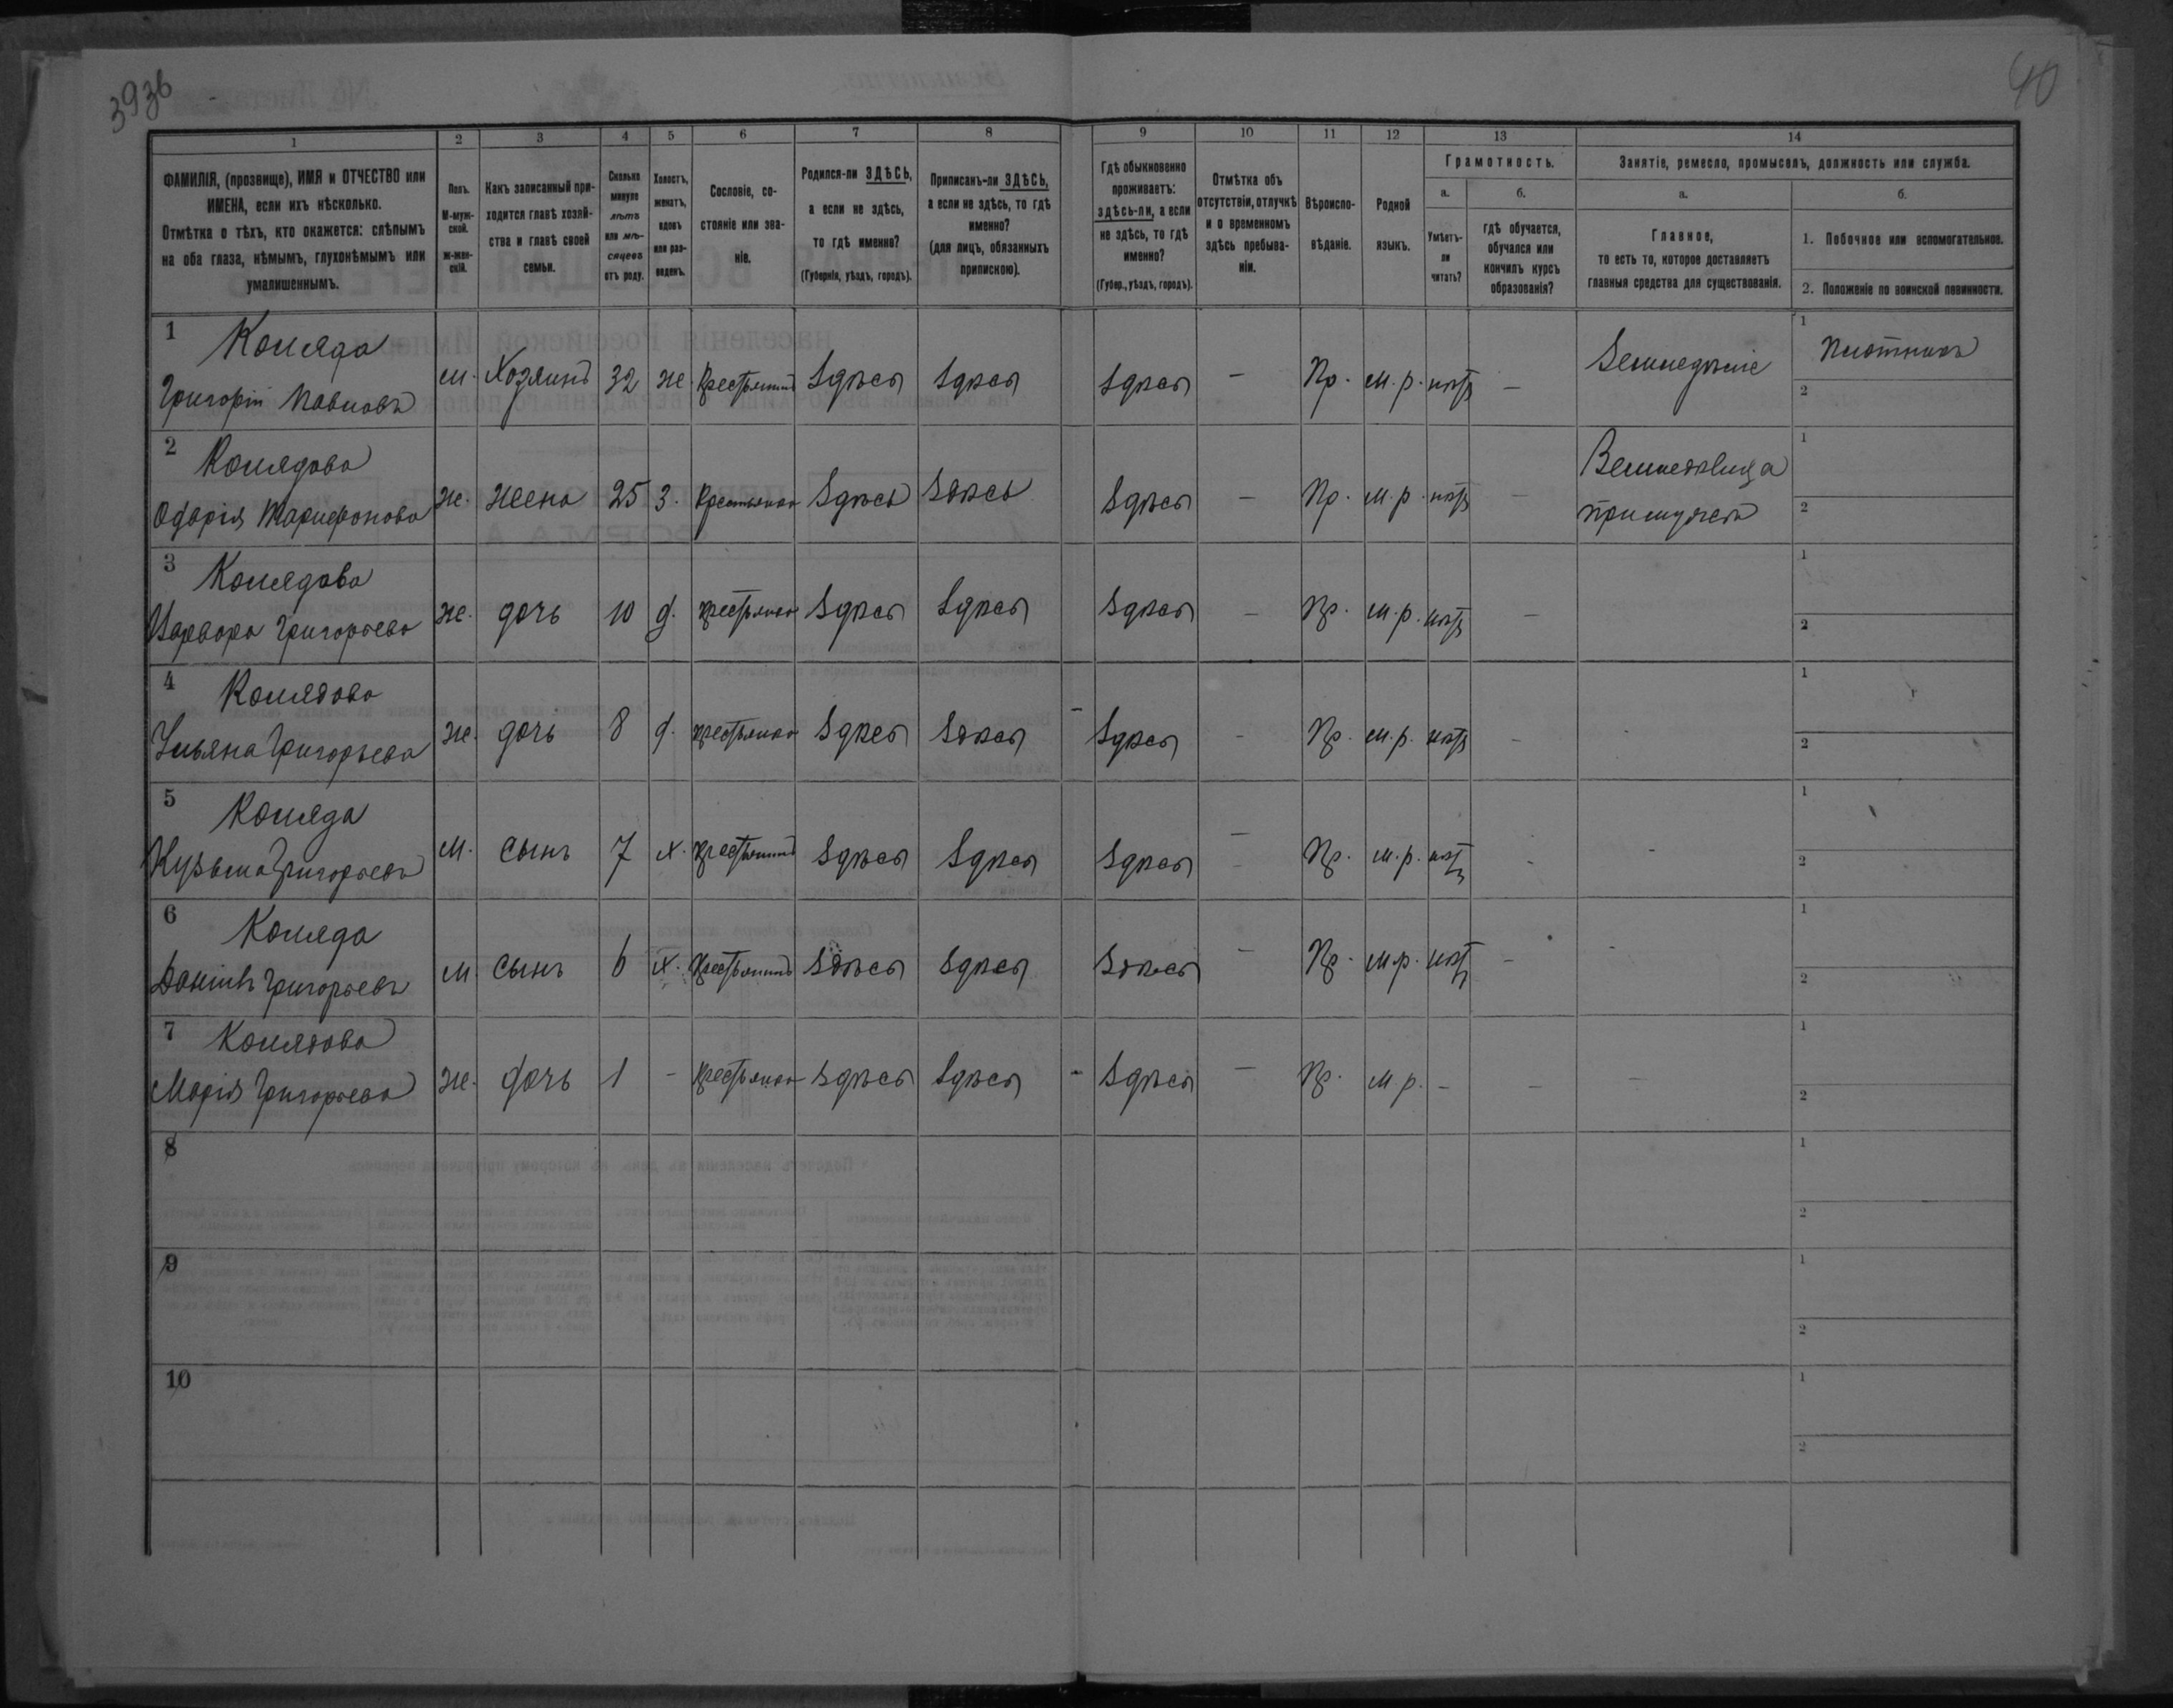 39зв
40
1 2 3 4 5 6 7 8 9 10 11 12 13 14
ФАМИЛІЯ, (прозвище), ИМЯ и ОТЧЕСТВО или ИМЕНА, если ихъ нѣсколько.
Отмѣтка о тѣхъ, кто окажется: слѣпымъ на оба глаза, нѣмымъ, глухонѣмымъ или умалишеннымъ.
Полъ. М-мужской. ж-женскій.
Какъ записанный приходится главѣ хозяйства и главѣ своей семьи.
Сколько минуло лѣтъ или мѣсяцевъ отъ роду.
Холостъ, женатъ, вдовъ или разведенъ.
Сословіе, состояніе или званіе.
Родился-ли ЗДѢСЬ, а если не здѣсь, то гдѣ именно?
(Губернія, уѣздъ, городъ).
Приписанъ-ли ЗДѢСЬ, а если не здѣсь, то гдѣ именно?
(для лицъ, обязанныхъ припискою).
Гдѣ обыкновенно проживаетъ: здѣсь-ли, а если не здѣсь, то гдѣ именно?
(Губер., уѣздъ, городъ).
Отмѣтка объ отсутствіи, отлучкѣ и о временномъ здѣсь пребываніи.
Вѣроисповѣданіе.
Родной языкъ.
Грамотность.
а.
Умѣетъ-ли читать?
б.
гдѣ обучается, обучался или кончилъ курсъ образованія?
Занятіе, ремесло, промыселъ, должность или служба.
а.
Главное,
то есть то, которое доставляетъ главныя средства для существованія.
б.
1. Побочное или вспомогательное.
2. Положеніе по воинской повинности.
1 Коляда
Григорій Павловъ м. Хозяинъ 32 ж. Крестьянинъ Здѣсь Здѣсь Здѣсь – Пр. м.р. нѣтъ – Земледѣліе 1 Плотникъ
2
2 Колядова
Одарія Тарифонова ж. жена 25 з. Крестьянка Здѣсь Здѣсь Здѣсь – Пр. м.р. нѣтъ – 1
2
3 Колядова
Варвара Григорьева ж. дочь 10 д. крестьянка Здѣсь Здѣсь Здѣсь – Пр. м.р. нѣтъ – 1
2
4 Колядова
Ульяна Григорьева ж. дочь 8 д. крестьянка Здѣсь Здѣсь Здѣсь – Пр. м.р. нѣтъ – - 1
2
5 Коляда
Кузьма Григорьевъ м. сынъ 7 х. крестьянинъ Здѣсь Здѣсь Здѣсь – Пр. м.р. нѣтъ - - 1
2
6 Коляда
Даніилъ Григорьевъ м сынъ 6 х. Крестьянинъ Здѣсь Здѣсь Здѣсь – Пр. м.р. нѣтъ – - 1
2
7 Колядова
Марія Григорьева ж. дочь 1 - крестьянка Здѣсь Здѣсь Здѣсь – Пр. м.р. – – – 1
2
8 1
2
9 1
2
10 1
2